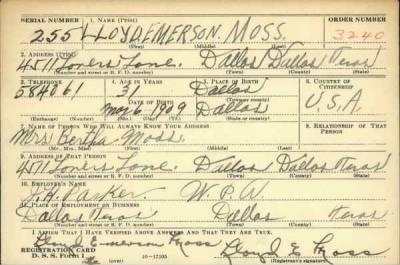 SERIAL NUMBER 1. NAME (Print) ORDER NUMBER
255 LOYD EMERSON MOSS. 3240
(First) (Middle) (Last)
2. ADDRESS (Print)
4511 Lovers Lane. Dallas Dallas Texas
(Number and street or R. F. D. number) (Town) (County) (State)
3. TELEPHONE 4. AGE IN YEARS 5. PLACE OF BIRTH 6. COUNTRY OF CITIZENSHIP
584061 31 Dallas
DATE OF BIRTH (Town or county) U.S.A
1909 Dallas
(Exchange) (Number) (Mo.) (Day) (Yr.) (State or country)
7. NAME OF PERSON WHO WILL ALWAYS KNOW YOUR ADDRESS 8. RELATIONSHIP OF THAT PERSON
Mrs Bertha Moss.
(Mr., Mrs., Miss) (First) (Middle) (Last)
9. ADDRESS OF THAT PERSON
4511 Lovers Lane. Dallas Dallas Texas
(Number and street or R. F. D. number) (Town) (County) (State)
10. EMPLOYER'S NAME
W.P.W.
11. PLACE OF EMPLOYMENT OR BUSINESS
Dallas Texas Dallas Texas
(Number and street or R. F. D. number) (Town) (County) (State)
I AFFIRM THAT I HAVE VERIFIED ABOVE ANSWERS AND THAT THEY ARE TRUE.
Loyd Emerson Moss Loyd E Moss
REGISTRATION CARD
D. S. S. Form 1 16—17105 (Registrant's signature)